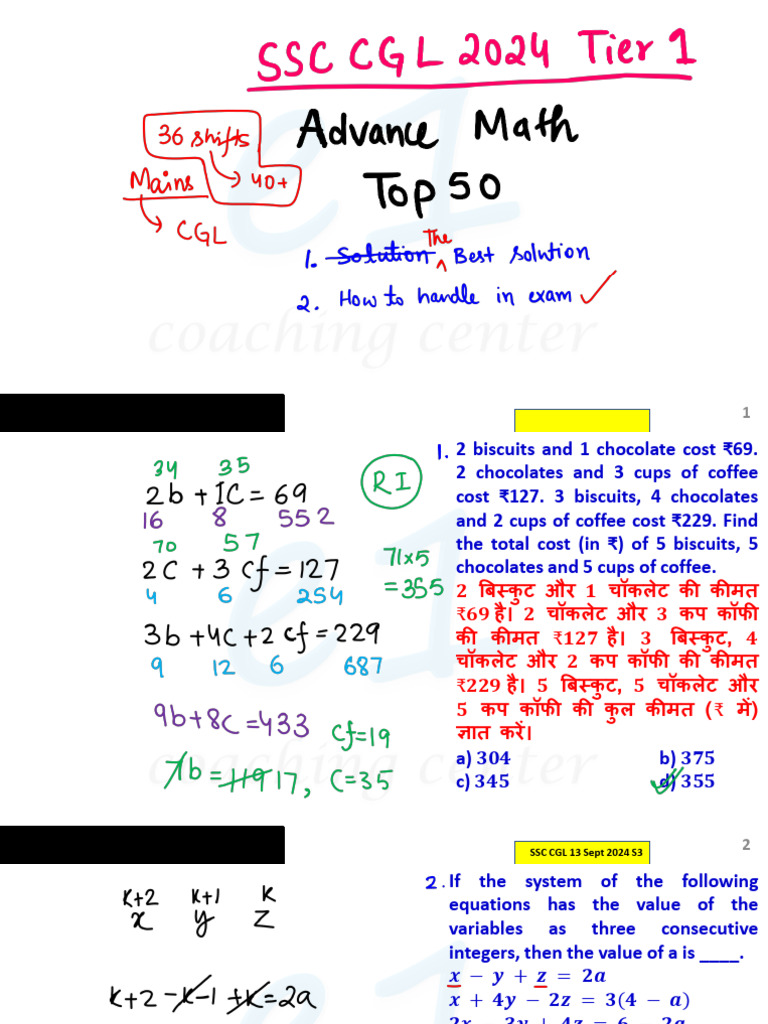 SSC CGL 2024 Tier 1
Advance Math
Top 50
36 shifts
40+
Mains
CGL
1. Solution The Best solution
2. How to handle in exam
coaching center
1
34 35
2b + 1C = 69
16 8 552
70 57
2C + 3 Cf = 127
4 6 254
3b + 4C + 2 Cf = 229
9 12 6 687
9b + 8C = 433
Cf = 19
7b = 119 17, C = 35
RI
71 x 5
= 355
1. 2 biscuits and 1 chocolate cost ₹69.
2 chocolates and 3 cups of coffee
cost ₹127. 3 biscuits, 4 chocolates
and 2 cups of coffee cost ₹229. Find
the total cost (in ₹) of 5 biscuits, 5
chocolates and 5 cups of coffee.
2 बिस्कुट और 1 चॉकलेट की कीमत
₹69 है। 2 चॉकलेट और 3 कप कॉफी
की कीमत ₹127 है। 3 बिस्कुट, 4
चॉकलेट और 2 कप कॉफी की कीमत
₹229 है। 5 बिस्कुट, 5 चॉकलेट और
5 कप कॉफी की कुल कीमत (₹ में)
ज्ञात करें।
a) 304 b) 375
c) 345 d) 355
coaching center
SSC CGL 13 Sept 2024 S3
2
k+2 k+1 k
x y z
k+2 -k-1 +k = 2a
2. If the system of the following
equations has the value of the
variables as three consecutive
integers, then the value of a is ____.
x − y + z = 2a
x + 4y − 2z = 3(4 − a)
2x − 3y + 4z = 6 − 2a